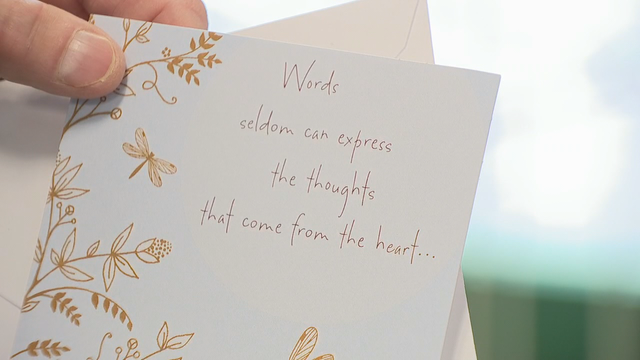 Words
seldom can express
the thoughts
that come from the heart...